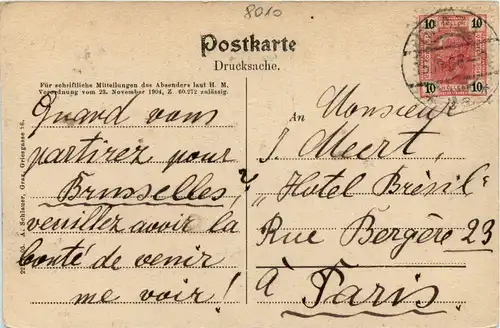 8010
Postkarte
Drucksache.
Für schriftliche Mitteilungen des Absenders laut H. M.
Verordnung vom 23. November 1904, Z. 60.272 zulässig.
10 10
10 10
Quand vous
partirez pour
Bruxelles,
veuillez avoir la
bonté de venir
me voir!
An Monsieur
J. Meert,
„Hotel Brésil“
Rue Bergère 23
à Paris.
A. Schlauer, Graz, Griesgasse 16.